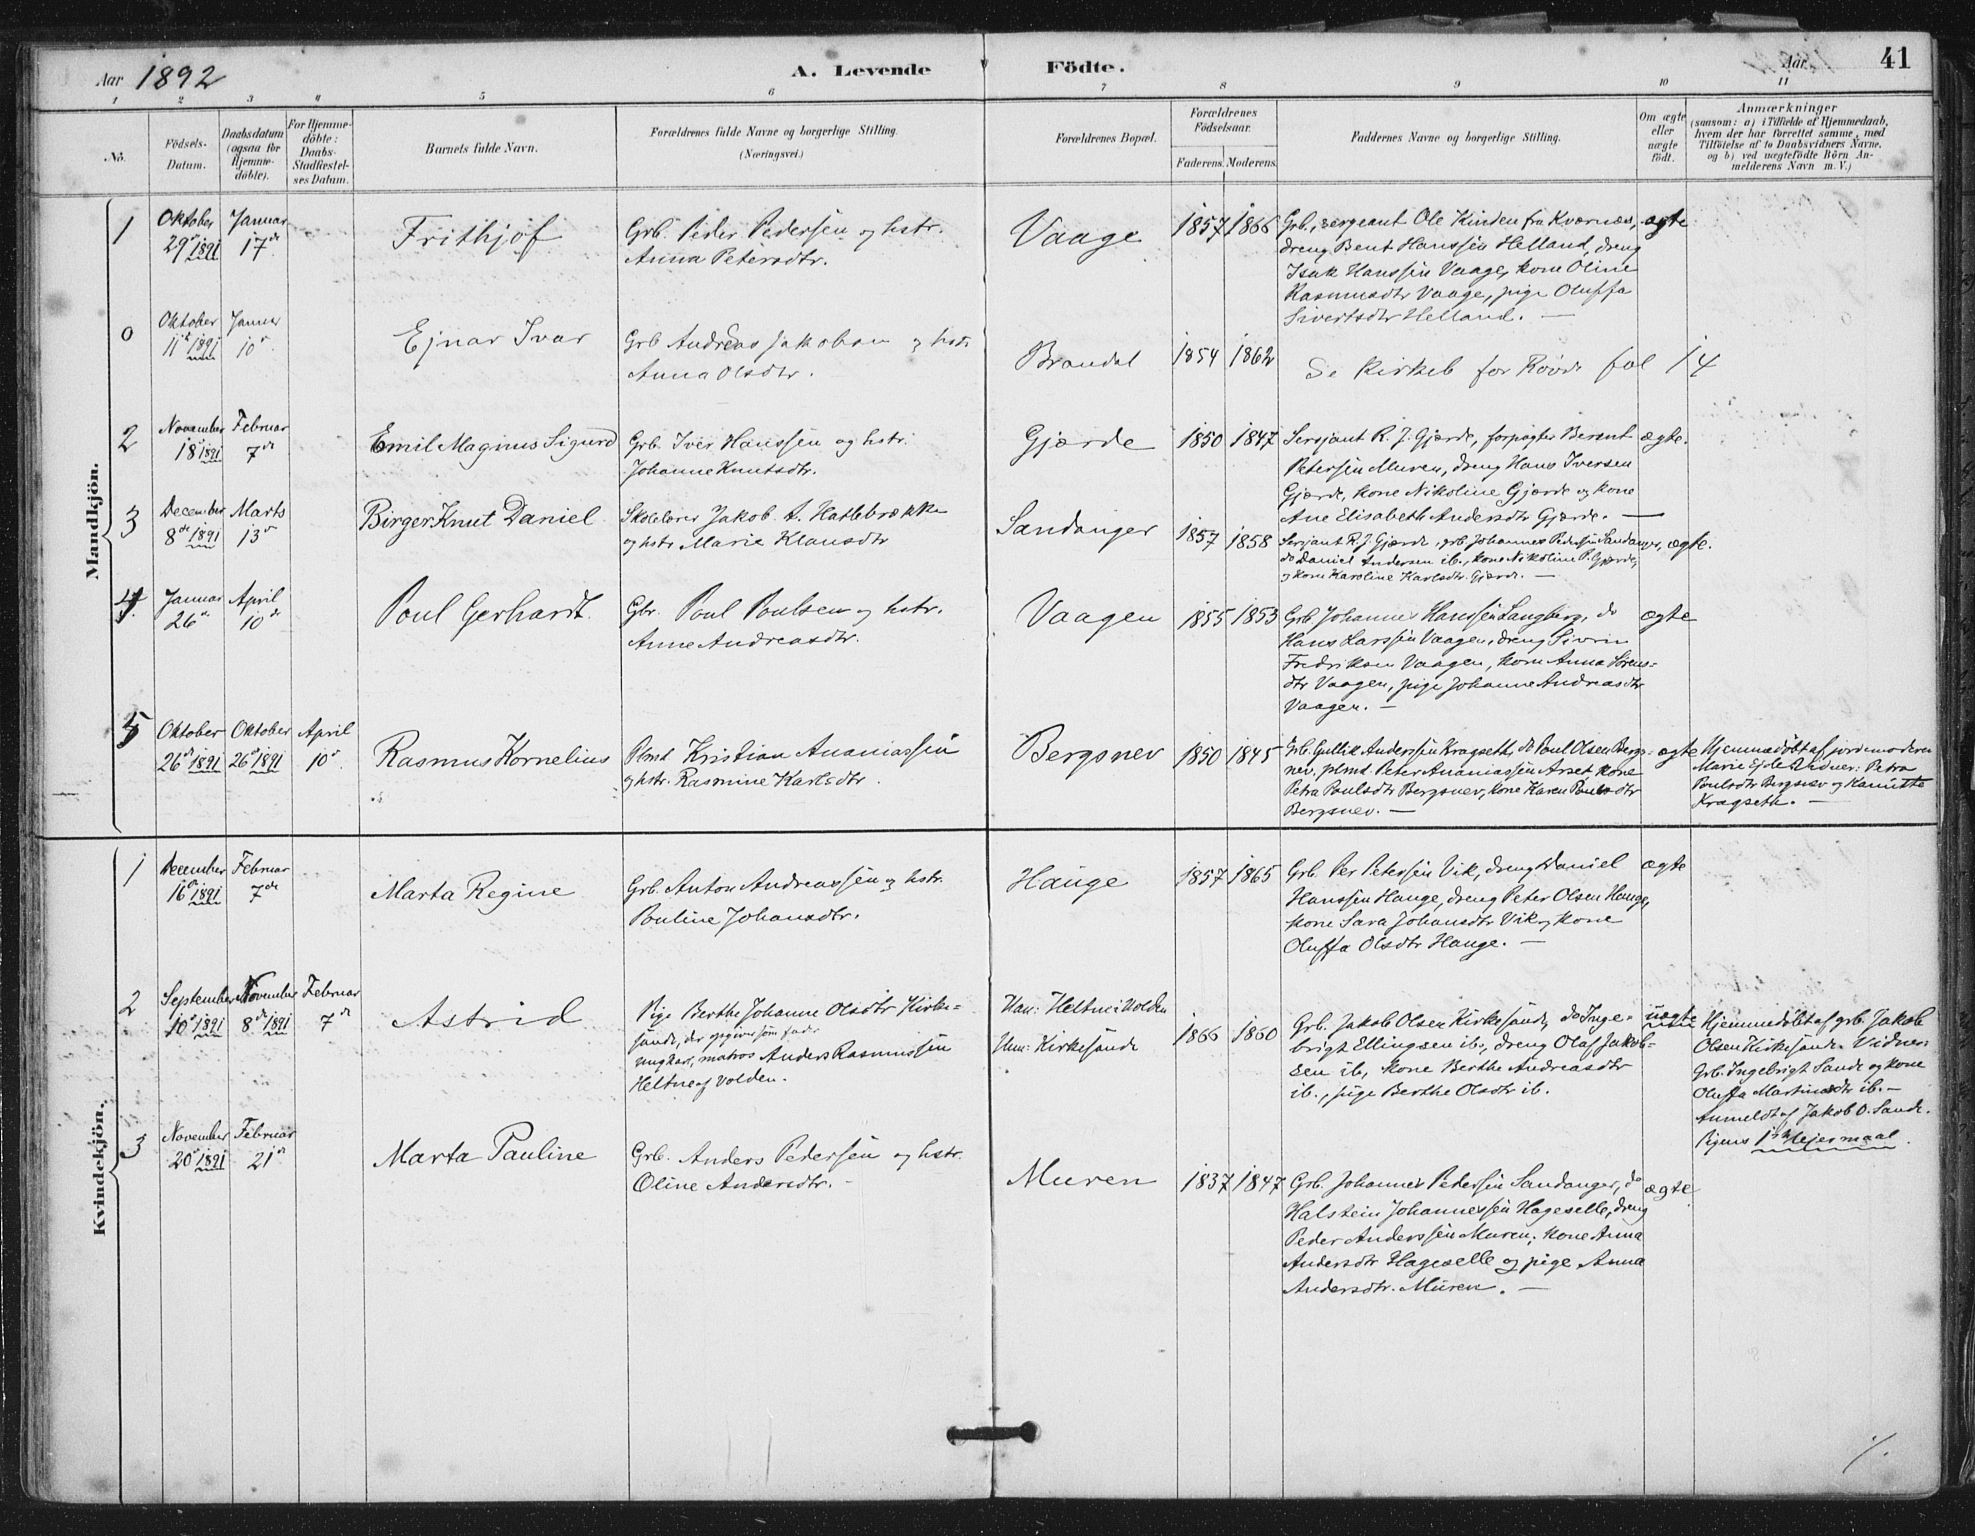 Aar 1892
A. Levende Födte.
Aar
41
1 2 3 4 5 6 7 8 9 10 11
No.
Födsels-
Datum.
Daabsdatum
(ogsaa for
Hjemme-
döbte).
For Hjemme-
döbte:
Daabs-
Stadfæstel-
ses Datum.
Barnets fulde Navn.
Forældrenes fulde Navne og borgerlige Stilling.
(Næringsvei.)
Forældrenes Bopæl.
Forældrenes
Födselsaar.
Faderens. Moderens.
Faddernes Navne og borgerlige Stilling.
Om ægte
eller
uægte
födt.
Anmærkninger
(saasom: a) i Tilfælde af Hjemmedaab,
hvem der har forrettet samme, med
Tilföielse af to Daabsvidners Navne,
og b) ved uægtefödte Börn An-
melderens Navn m. V.)
Mandkjön.
1
Oktober
29 1891
Januar
17de
Frithjof
Grb. Peder Pedersen og hstr.
Anna Petersdtr.
Vaage
1857 1866
Grb., sergeant Ole Kinden fra Kværnæs,
dreng Bent Hanssen Helland, dreng
Isak Hanssen Vaage, kone Oline
Rasmusdtr Vaage, pige Oluffa
Sivertsdtr Helland. —
ægte
0
Oktober
11te 1891
Januar
10
Ejnar Ivar
Grb Andreas Jakobsen og hstr
Anna Olsdtr.
Brandal
1854 1862
Se kirkeb for Rövde fol 14
2
November
18 1891
Februar
7de
Emil Magnus Sigurd
Grb. Iver Hanssen og hstr.
Johanne Knutsdtr.
Gjærde
1850 1847
Sersjant R. J. Gjærde, forpagter Berent
Petersen Muren, dreng Hans Iversen
Gjærde, kone Nikoline Gjærde og kone
Ane Elisabeth Andersdtr Gjærde. —
ægte.
3
December
8de 1891
Marts
13
Birger Knut Daniel
Skolelærer Jakob A. Hatlebrække
og hstr Marie Klausdtr
Sandanger
1857 1858
Serjant R. J. Gjærde, grb. Johannes Pedersen Sandanger,
do Daniel Andersen ib., kone Nikoline P. Gjærde,
og kone Karoline Karlsdtr. Gjærde. —
ægte.
4
Januar
26
April
10de
Poul Gerhardt
Gbr. Poul Poulsen og hstr.
Anne Andreasdtr.
Vaagen
1855 1853
Grb Johannes Hanssen Langberg, do
Hans Larssen Vaagen, dreng Sivrin
Fredriksen Vaagen, kone Anna Sörens-
dtr Vaagen, pige Johanne Andreasdtr
Vaagen. —
ægte
5
Oktober
26de 1891
Oktober
26 1891
April
10
Rasmus Kornelius
Plmd. Kristian Ananiassen
og hstr. Rasmine Karlsdtr.
Bergsnev
1850 1845
Grb. Gullik Anderssen Kragseth, do Poul Olsen Bergs-
nev, plmd. Peter Ananiassen Aaset kone
Petra Poulsdtr Bergsnev, kone Karen Poulsdtr
Bergsnev. —
ægte
Hjemmedöbt af jordemoderen
Marie Ejde Vidner: Petra
Poulsdtr Bergsnev og
Kragseth. —
Kvindekjön.
1
December
16de 1891
Februar
7de
Marta Regine
Grb. Anton Andreassen og hstr.
Pouline Johansdtr.
Hauge
1857 1865
Grb. Per Petersen Vik, dreng Daniel
Hanssen Hauge, dreng Peter Olsen Hauge,
kone Sara Johansdtr Vik og kone
Oluffa Olsdtr Hauge. —
ægte
2
September
10 1891
November
8de 1891
Februar
7de
Astrid
Pige Berthe Johanne Olsdtr Kirke-
sande, der opgiver som fader
ungkar, matros Anders Rasmussen
Heltne af Volden.
Han: Heltne i Volden
Hun: Kirkesande
1866 1860
Grb. Jakob Olsen Kirkesande, do Inge-
brigt Ellingsen ib., dreng Olaf Jakob-
sen ib, kone Berthe Andreasdtr
ib., pige Berthe Olsdtr ib.
uægte
Hjemmedöbt af grb. Jakob
Olsen Kirkesande. Vidner:
Grb. Ingebrigt Sande og kone
Oluffa Martinsdtr ib. —
Anmeldt af Jakob O. Sande.
Pigens 1ste lejermaal.
3
November
20 1891
Februar
21de
Marta Pauline
Grb. Anders Pedersen og hstr.
Oline Andersdtr. —
Muren
1837 1847
Grb. Johannes Petersen Sandanger, do
Halstein Johannessen Hageselle, dreng
Peder Anderssen Muren, kone Anna
Andersdtr Hageselle og pige Anna
Andersdtr. Muren. —
ægte